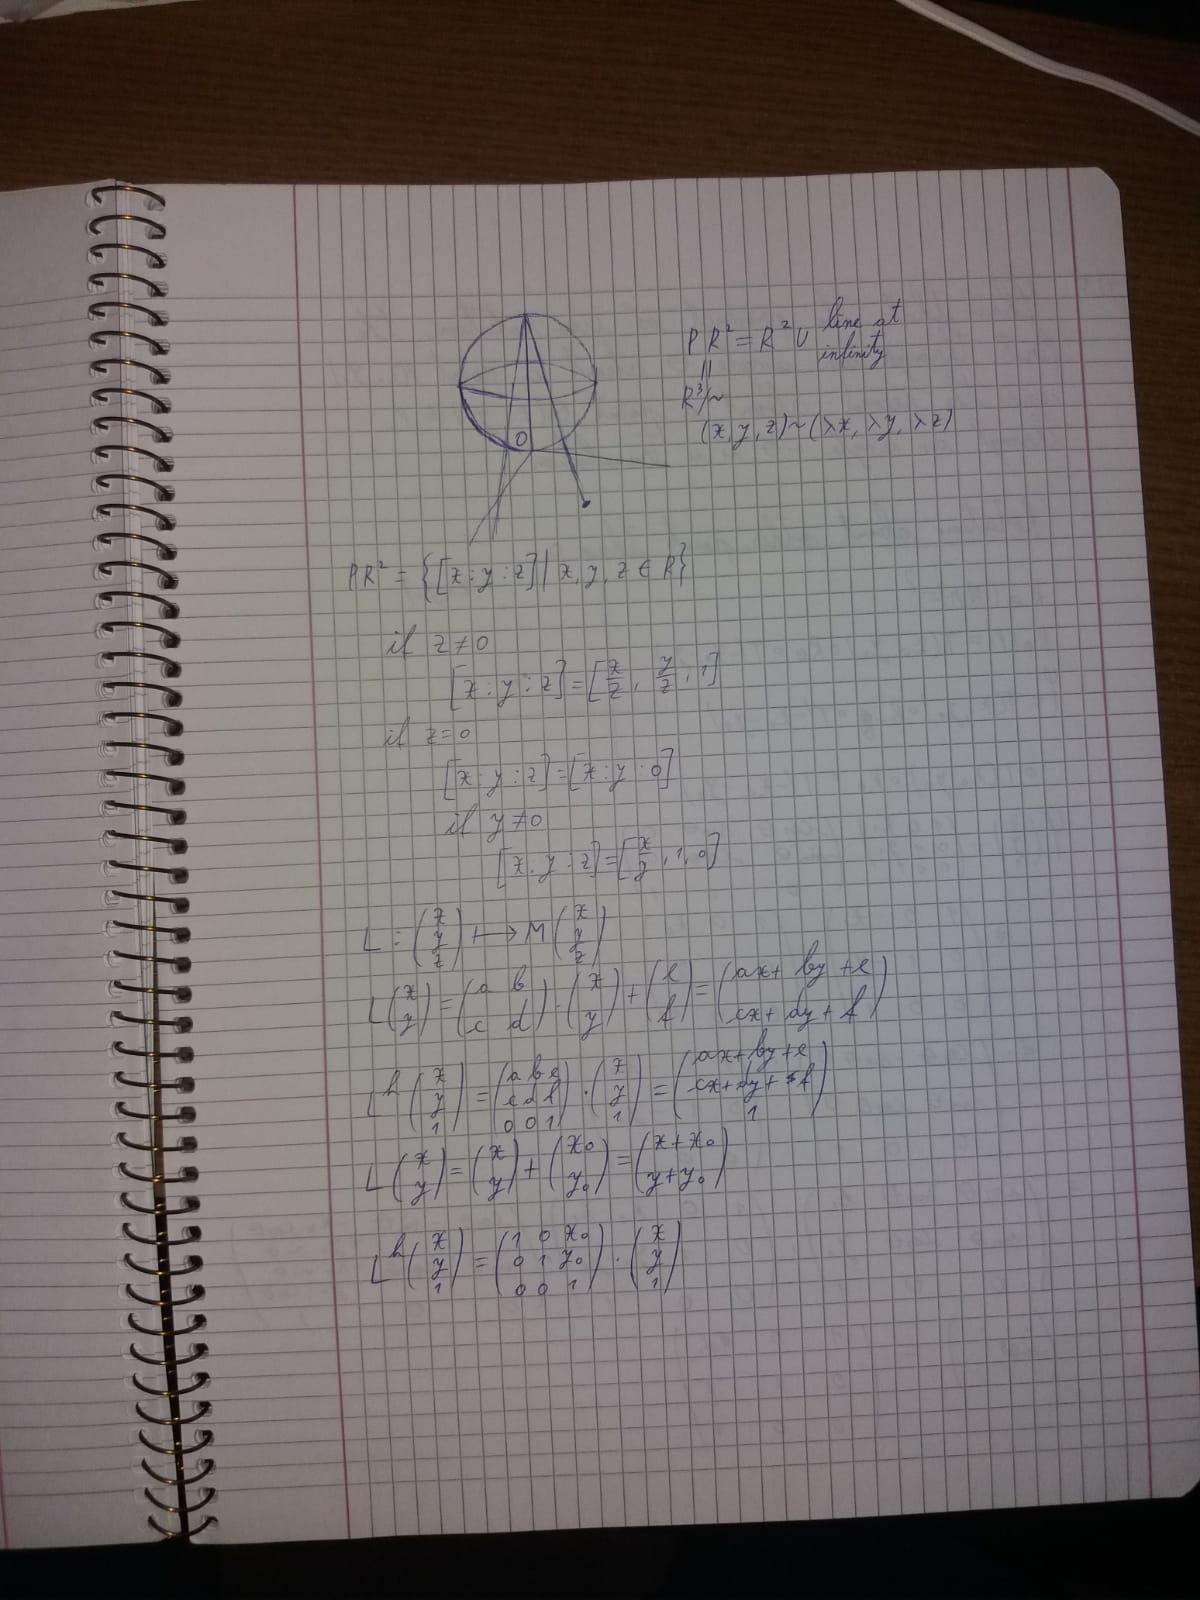 PR² = R² ∪ line at infinity
||
R³/~
(x, y, z) ~ (λx, λy, λz)
O
PR² = {[x : y : z] | x, y, z ∈ R}
if z ≠ 0
[x : y : z] = [x/z, y/z, 1]
if z = 0
[x : y : z] = [x : y : 0]
if y ≠ 0
[x : y : z] = [x/y, 1, 0]
L : (x y z) ⟼ M (x y z)
L (x y) = (a b / c d) · (x y) + (e f) = (ax + by + e / cx + dy + f)
Lʰ (x y 1) = (a b e / c d f / 0 0 1) · (x y 1) = (ax + by + e / cx + dy + f / 1)
L (x y) = (x y) + (x₀ y₀) = (x + x₀ / y + y₀)
Lʰ (x y 1) = (1 0 x₀ / 0 1 y₀ / 0 0 1) · (x y 1)